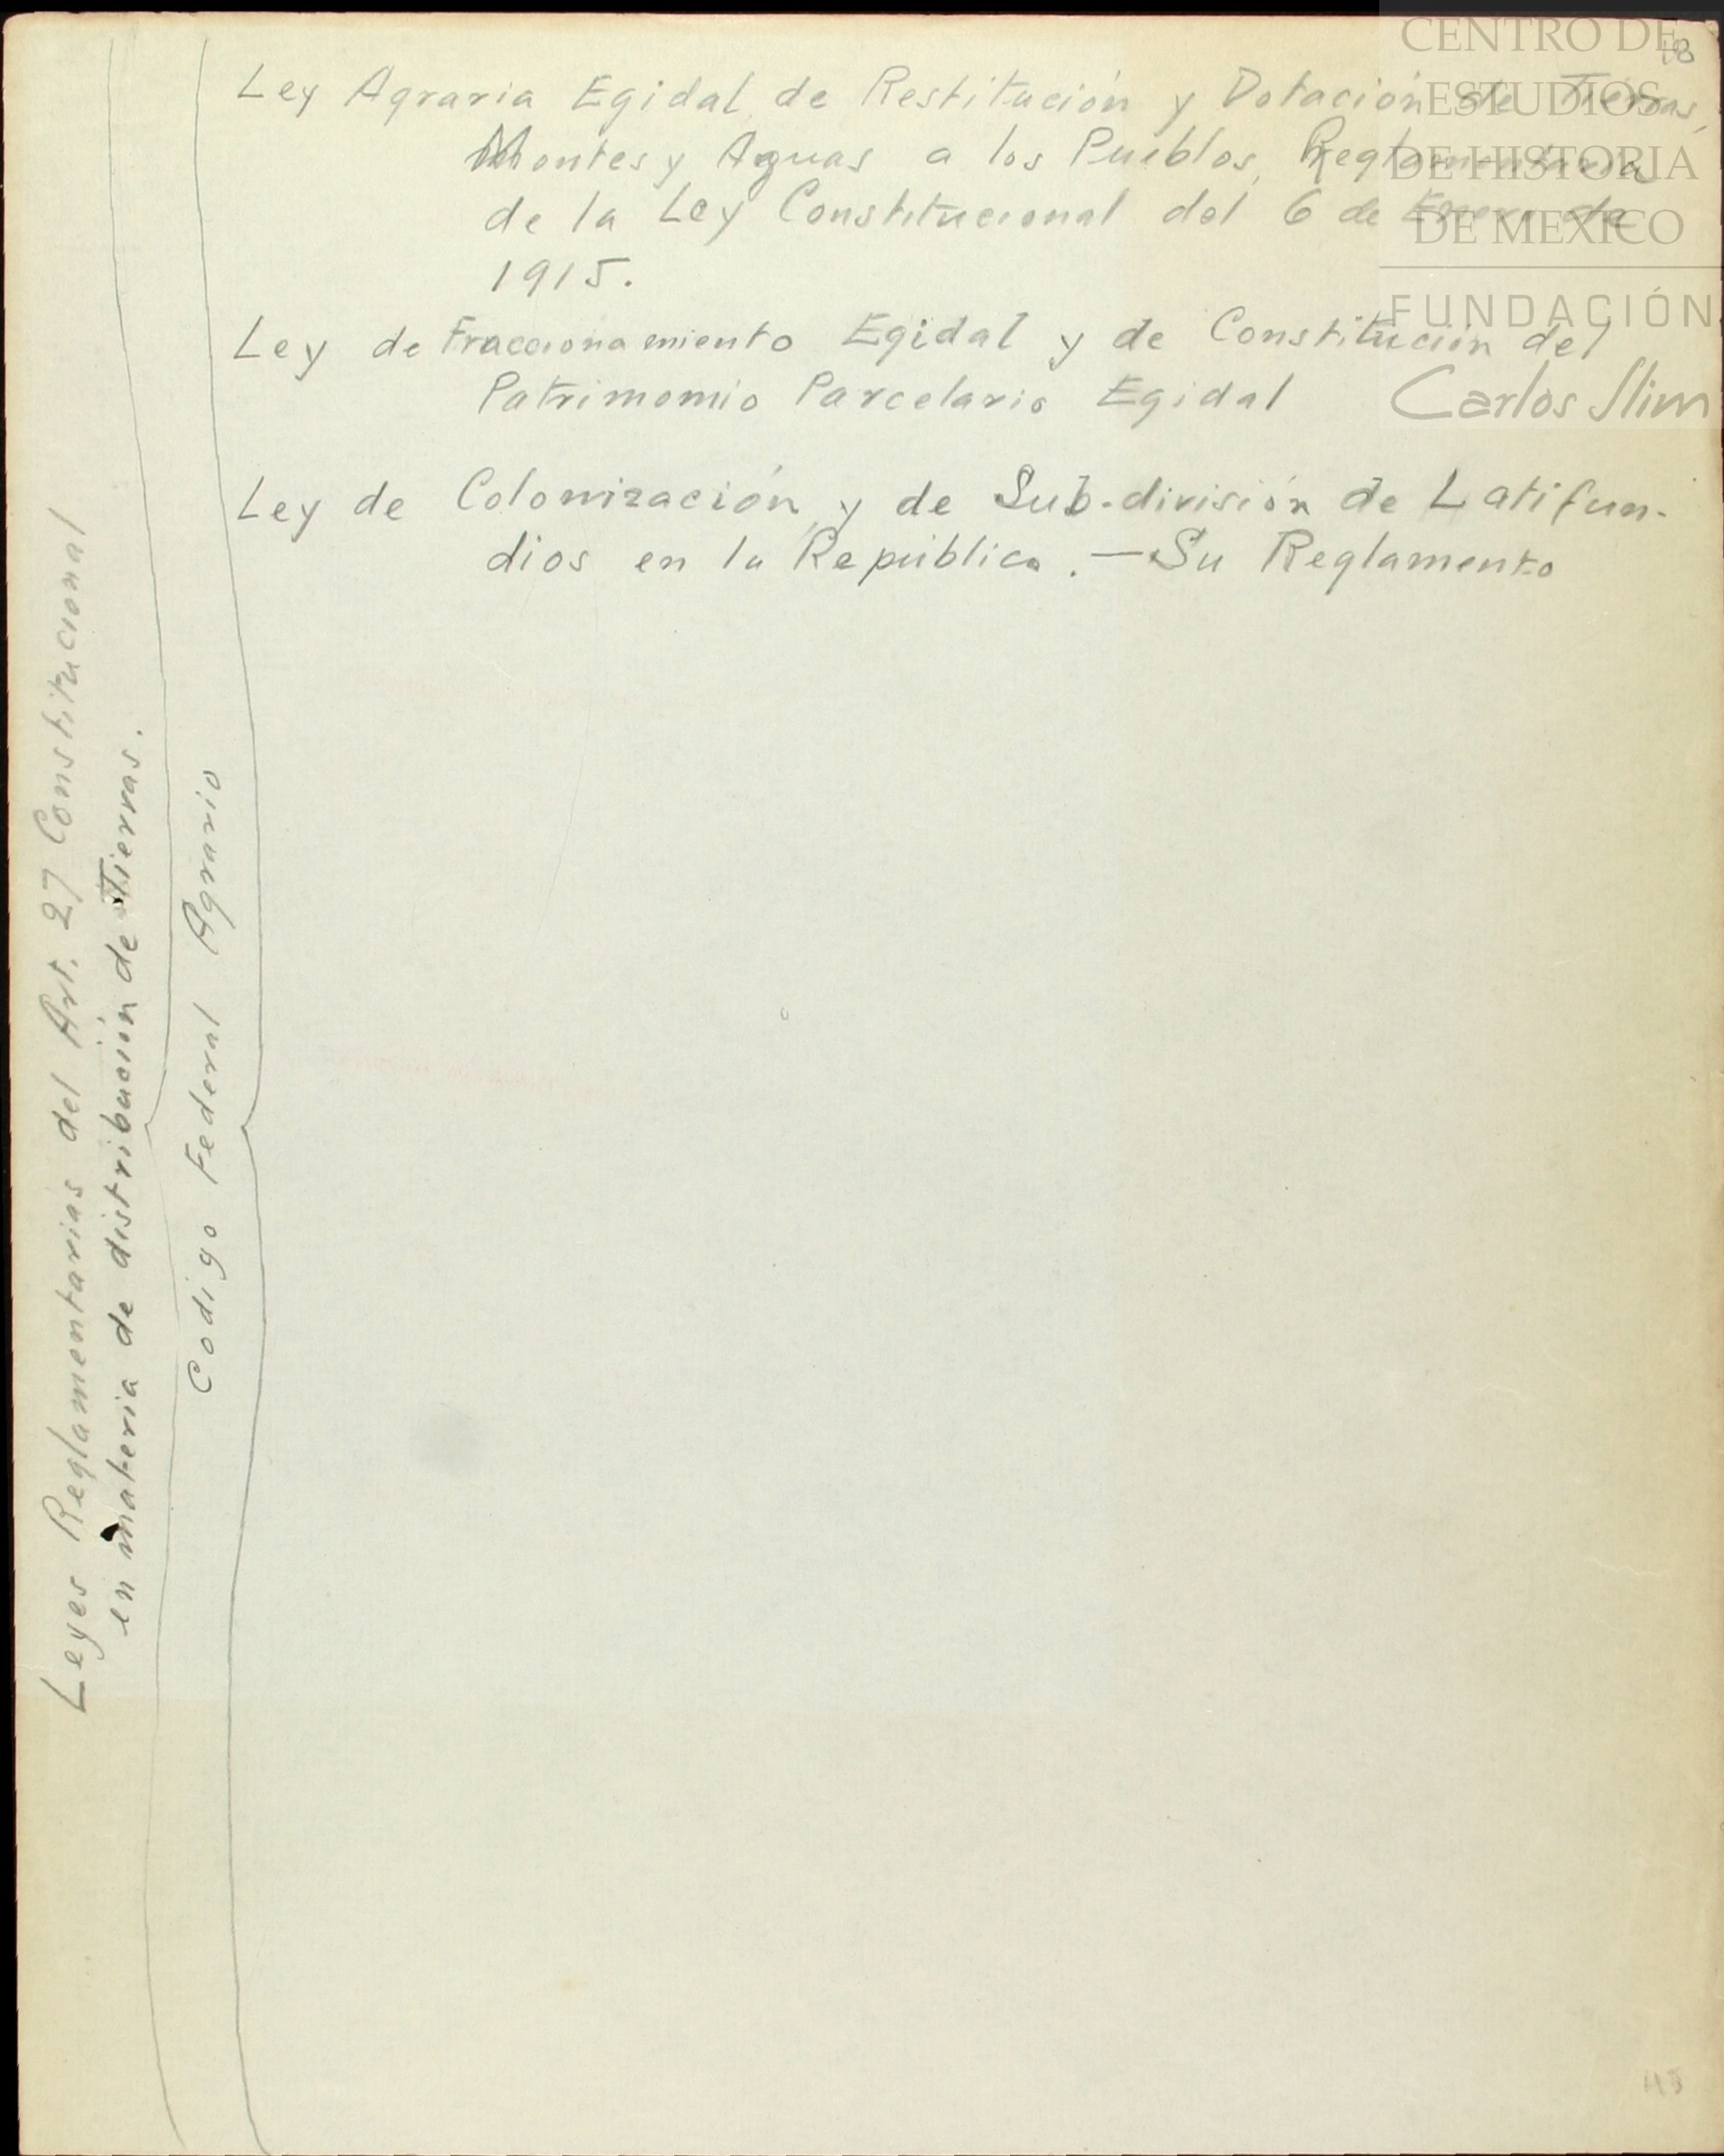 Leyes Reglamentarias del Art. 27 Constitucional
en materia de distribución de Tierras.
Codigo Federal Agrario
Ley Agraria Egidal de Restitución y Dotación de Tierras,
Montes y Aguas a los Pueblos, Reglamentaria
de la Ley Constitucional del 6 de Enero de
1915.
Ley de Fraccionamiento Egidal y de Constitución del
Patrimonio Parcelario Egidal
Ley de Colonización y de Sub-division de Latifun-
dios en la República. — Su Reglamento
CENTRO DE
ESTUDIOS
DE HISTORIA
DE MEXICO
FUNDACIÓN
Carlos Slim